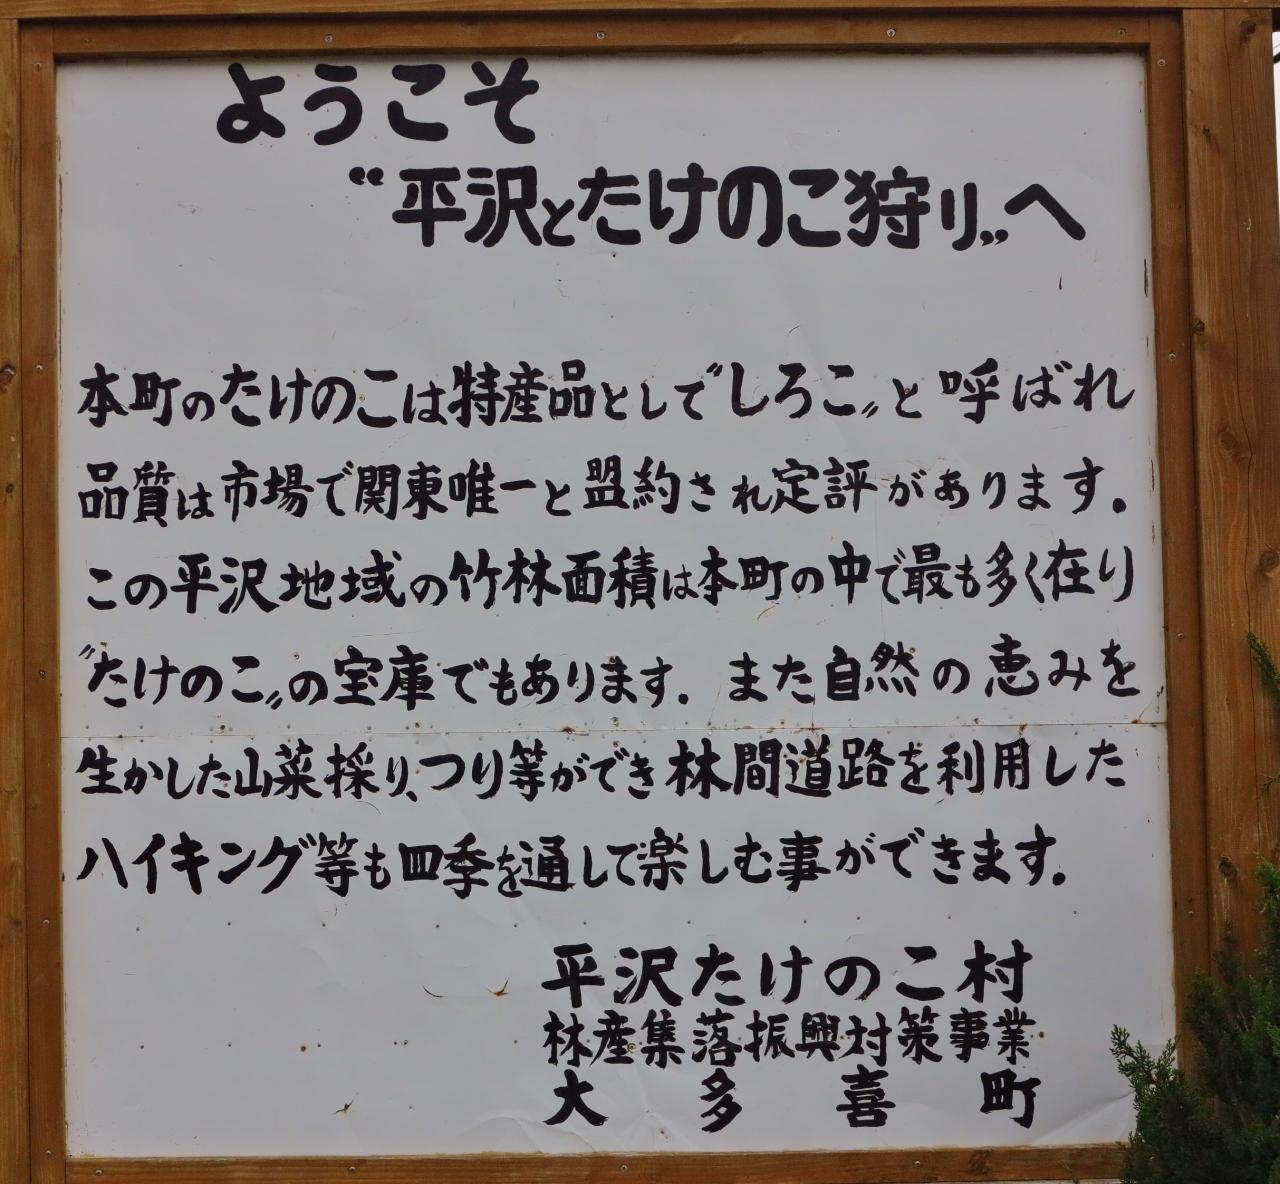 ようこそ
“平沢とたけのこ狩り„へ
本町のたけのこは特産品として〝しろこ〟と呼ばれ
品質は市場で関東唯一と盟約され定評があります。
この平沢地域の竹林面積は本町の中で最も多く在り
〝たけのこ〟の宝庫でもあります。また自然の恵みを
生かした山菜採り、つり等ができ林間道路を利用した
ハイキング等も四季を通して楽しむ事ができます。
平沢たけのこ村
林産集落振興対策事業
大多喜町